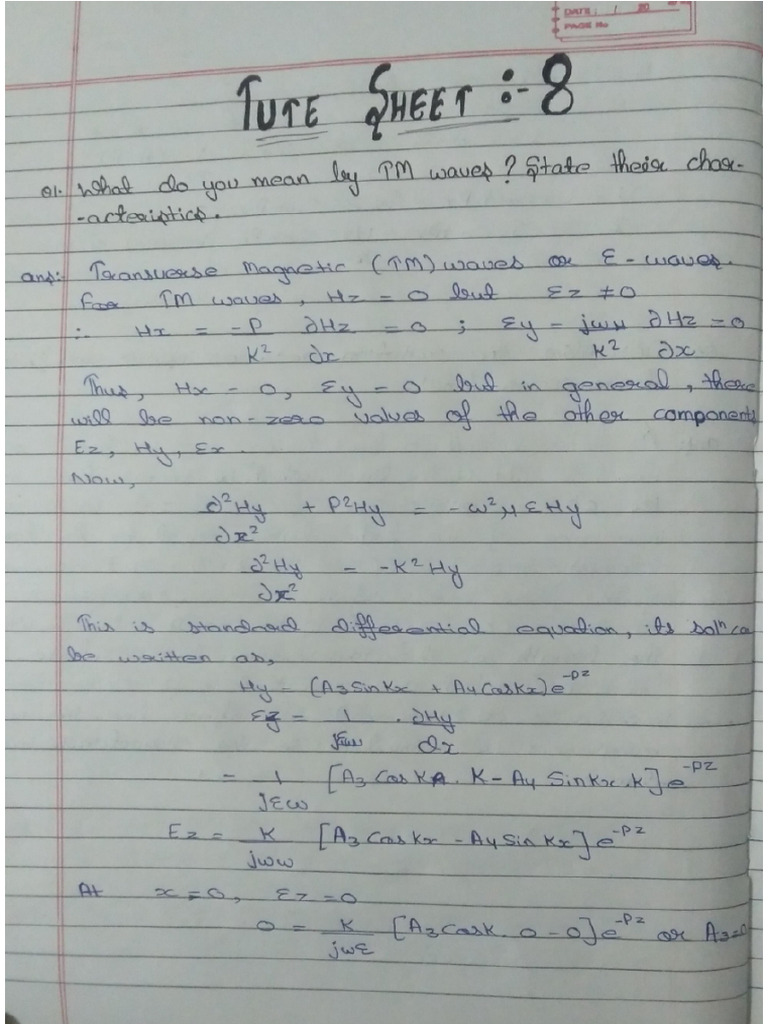 DATE: / / 20
PAGE No
TUTE SHEET :- 8
Q1. What do you mean by TM waves? State their char-
-acteristics.
ans:- Transverse Magnetic (TM) waves or E-waves.
For TM waves, Hz = 0 but Ez ≠ 0
∴ Hx = -P/K² ∂Hz/∂x = 0 ; Ey = jωμ/K² ∂Hz/∂x = 0
Thus, Hx = 0, Ey = 0 but in general, there
will be non-zero values of the other components
Ez, Hy, Ex.
Now,
∂²Hy/∂x² + P²Hy = -ω²με Hy
∂²Hy/∂x² = -K²Hy
This is standard differential equation, its solⁿ ca
be written as,
Hy = (A3 Sin Kx + A4 Cos Kx) e^-Pz
Ez = 1/jεω . ∂Hy/∂x
= 1/jεω [A3 Cos Kx . K - A4 Sin Kx . K] e^-Pz
Ez = K/jωω [A3 Cos Kx - A4 Sin Kx] e^-Pz
At x = 0, Ez = 0
0 = K/jωε [A3 Cos K . 0 - 0] e^-Pz or A3=0